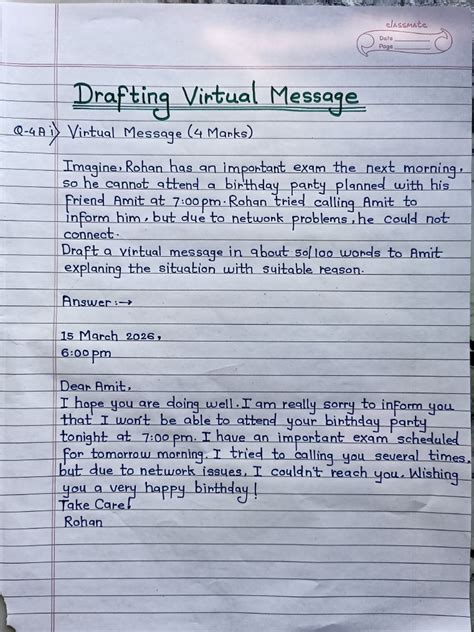 classmate
Date
Page
Drafting Virtual Message
Q-4A i) Virtual Message (4 Marks)
Imagine, Rohan has an important exam the next morning,
so he cannot attend a birthday party planned with his
friend Amit at 7:00pm. Rohan tried calling Amit to
inform him, but due to network problems, he could not
connect.
Draft a virtual message in about 50/100 words to Amit
explaning the situation with suitable reason.
Answer :→
15 March 2026,
6:00pm
Dear Amit,
I hope you are doing well. I am really sorry to inform you
that I won't be able to attend your birthday party
tonight at 7:00pm. I have an important exam scheduled
for tomorrow morning. I tried to calling you several times,
but due to network issues, I couldn't reach you. Wishing
you a very happy birthday!
Take Care!
Rohan